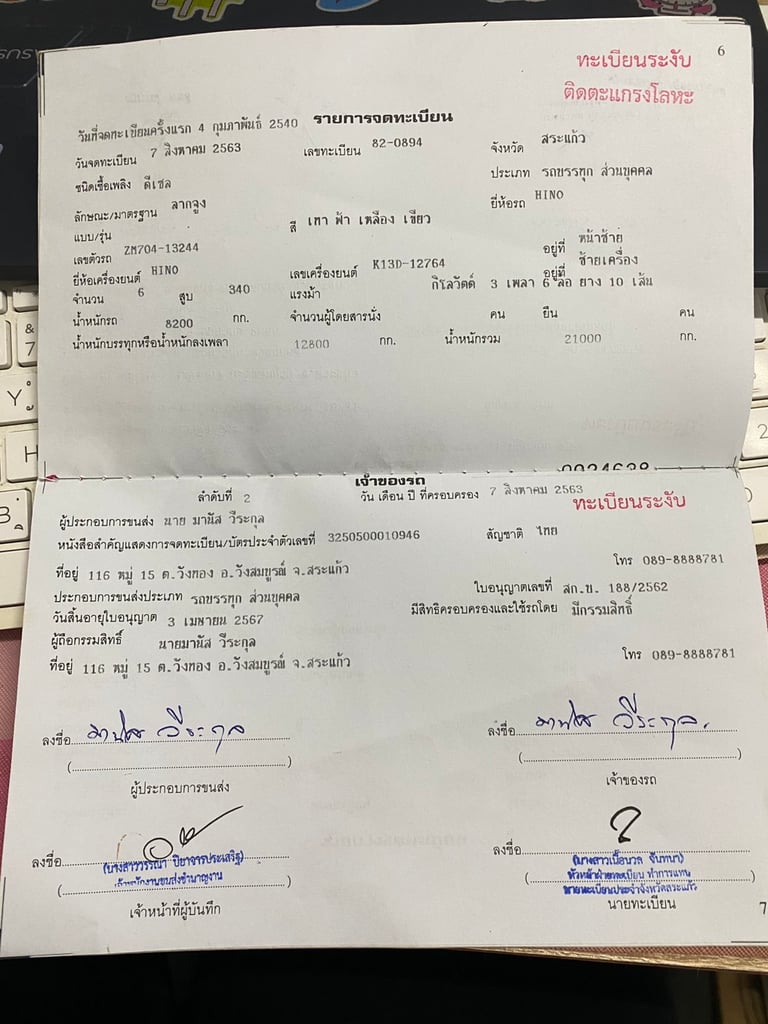 6
ทะเบียนระงับ
ติดตะแกรงโลหะ
รายการจดทะเบียน
วันที่จดทะเบียนครั้งแรก 4 กุมภาพันธ์ 2540
วันจดทะเบียน 7 สิงหาคม 2563 เลขทะเบียน 82-0894 จังหวัด สระแก้ว
ชนิดเชื้อเพลิง ดีเซล ประเภท รถบรรทุก ส่วนบุคคล
ลักษณะ/มาตรฐาน ลากจูง สี เทา ฟ้า เหลือง เขียว ยี่ห้อรถ HINO
แบบ/รุ่น
เลขตัวรถ ZM704-13244 อยู่ที่ หน้าซ้าย
ยี่ห้อเครื่องยนต์ HINO เลขเครื่องยนต์ K13D-12764 อยู่ที่ ซ้ายเครื่อง
จำนวน 6 สูบ 340 แรงม้า กิโลวัตต์ 3 เพลา 6 ล้อ ยาง 10 เส้น
น้ำหนักรถ 8200 กก. จำนวนผู้โดยสารนั่ง คน ยืน คน
น้ำหนักบรรทุกหรือน้ำหนักลงเพลา 12800 กก. น้ำหนักรวม 21000 กก.
เจ้าของรถ
ลำดับที่ 2 วัน เดือน ปี ที่ครอบครอง 7 สิงหาคม 2563
ทะเบียนระงับ
ผู้ประกอบการขนส่ง นาย มานัส วีระกุล
หนังสือสำคัญแสดงการจดทะเบียน/บัตรประจำตัวเลขที่ 3250500010946 สัญชาติ ไทย
ที่อยู่ 116 หมู่ 15 ต.วังทอง อ.วังสมบูรณ์ จ.สระแก้ว โทร 089-8888781
ประกอบการขนส่งประเภท รถบรรทุก ส่วนบุคคล ใบอนุญาตเลขที่ สก.บ. 188/2562
วันสิ้นอายุใบอนุญาต 3 เมษายน 2567 มีสิทธิครอบครองและใช้รถโดย มีกรรมสิทธิ์
ผู้ถือกรรมสิทธิ์ นายมานัส วีระกุล
ที่อยู่ 116 หมู่ 15 ต.วังทอง อ.วังสมบูรณ์ จ.สระแก้ว โทร 089-8888781
ลงชื่อ มานัส วีระกุล ลงชื่อ มานัส วีระกุล
ผู้ประกอบการขนส่ง เจ้าของรถ
ลงชื่อ ลงชื่อ
(นางสาววรรณา ปิยาจารประเสริฐ) (นางสาวเนื้อนวล จันทนา)
เจ้าพนักงานขนส่งชำนาญงาน หัวหน้าฝ่ายทะเบียน ทำการแทน
นายทะเบียนประจำจังหวัดสระแก้ว
เจ้าหน้าที่ผู้บันทึก นายทะเบียน
7